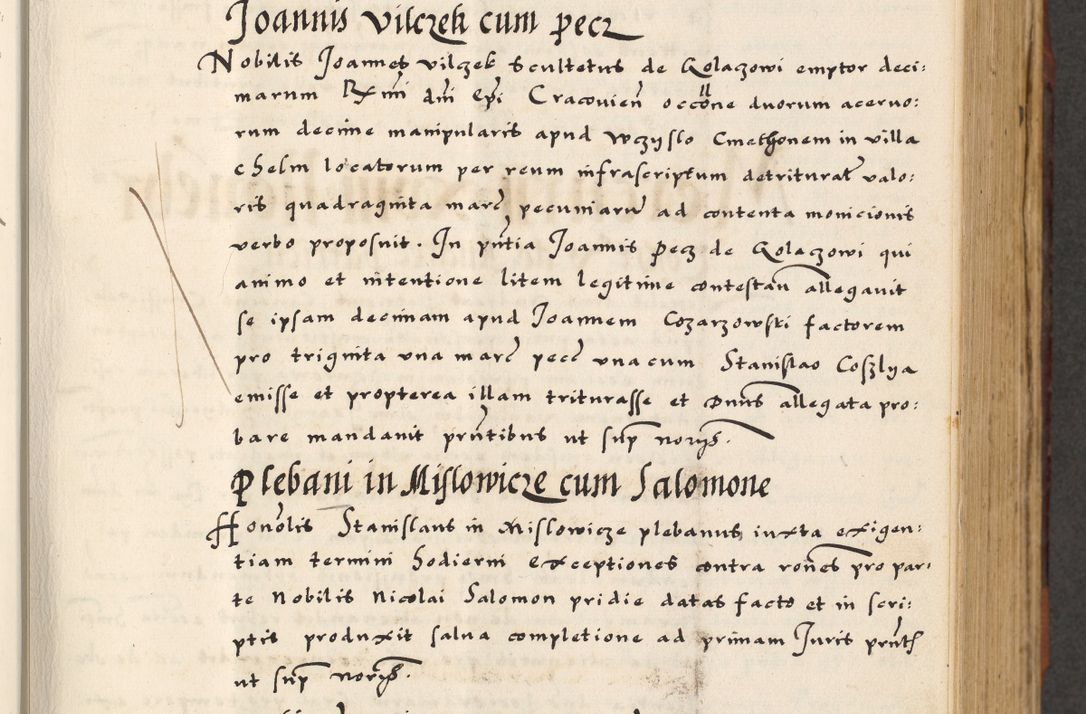 Joannis Vilczek cum pecz
Nobilis Joannes vilczek Scultetus de Golaczowi emptor deci:
marum Rxmi dni Epi Cracovien occone duorum acervo:
rum decime manipularis apud Wczyslo Cmethonem in villa
chelm locatorum per reum infrascriptum detriturat valo:
ris quadraginta marc pecuniaru ad contenta monicionis
verbo proposuit. In pntia Joannis pecz de Golaczowi qui
animo et intentione litem legitime contestan allegavit
se ipsam decimam apud Joannem Cozarzowski factorem
pro triginta una marc pecc una cum Stanislao Coszlya
emisse et propterea illam triturasse et Dnus allegata pro:
bare mandavit prntibus ut sup noriis.
Plebani in Mislowicze cum Salomone
Honolis Stanislaus in Mislowicze plebanus iuxta exigen:
tiam termini hodierni exceptiones contra rones pro par:
te Nobilis Nicolai Salomon pridie datas facto et in scri:
ptis produxit salva completione ad primam Juris prnts
ut sup noriis.